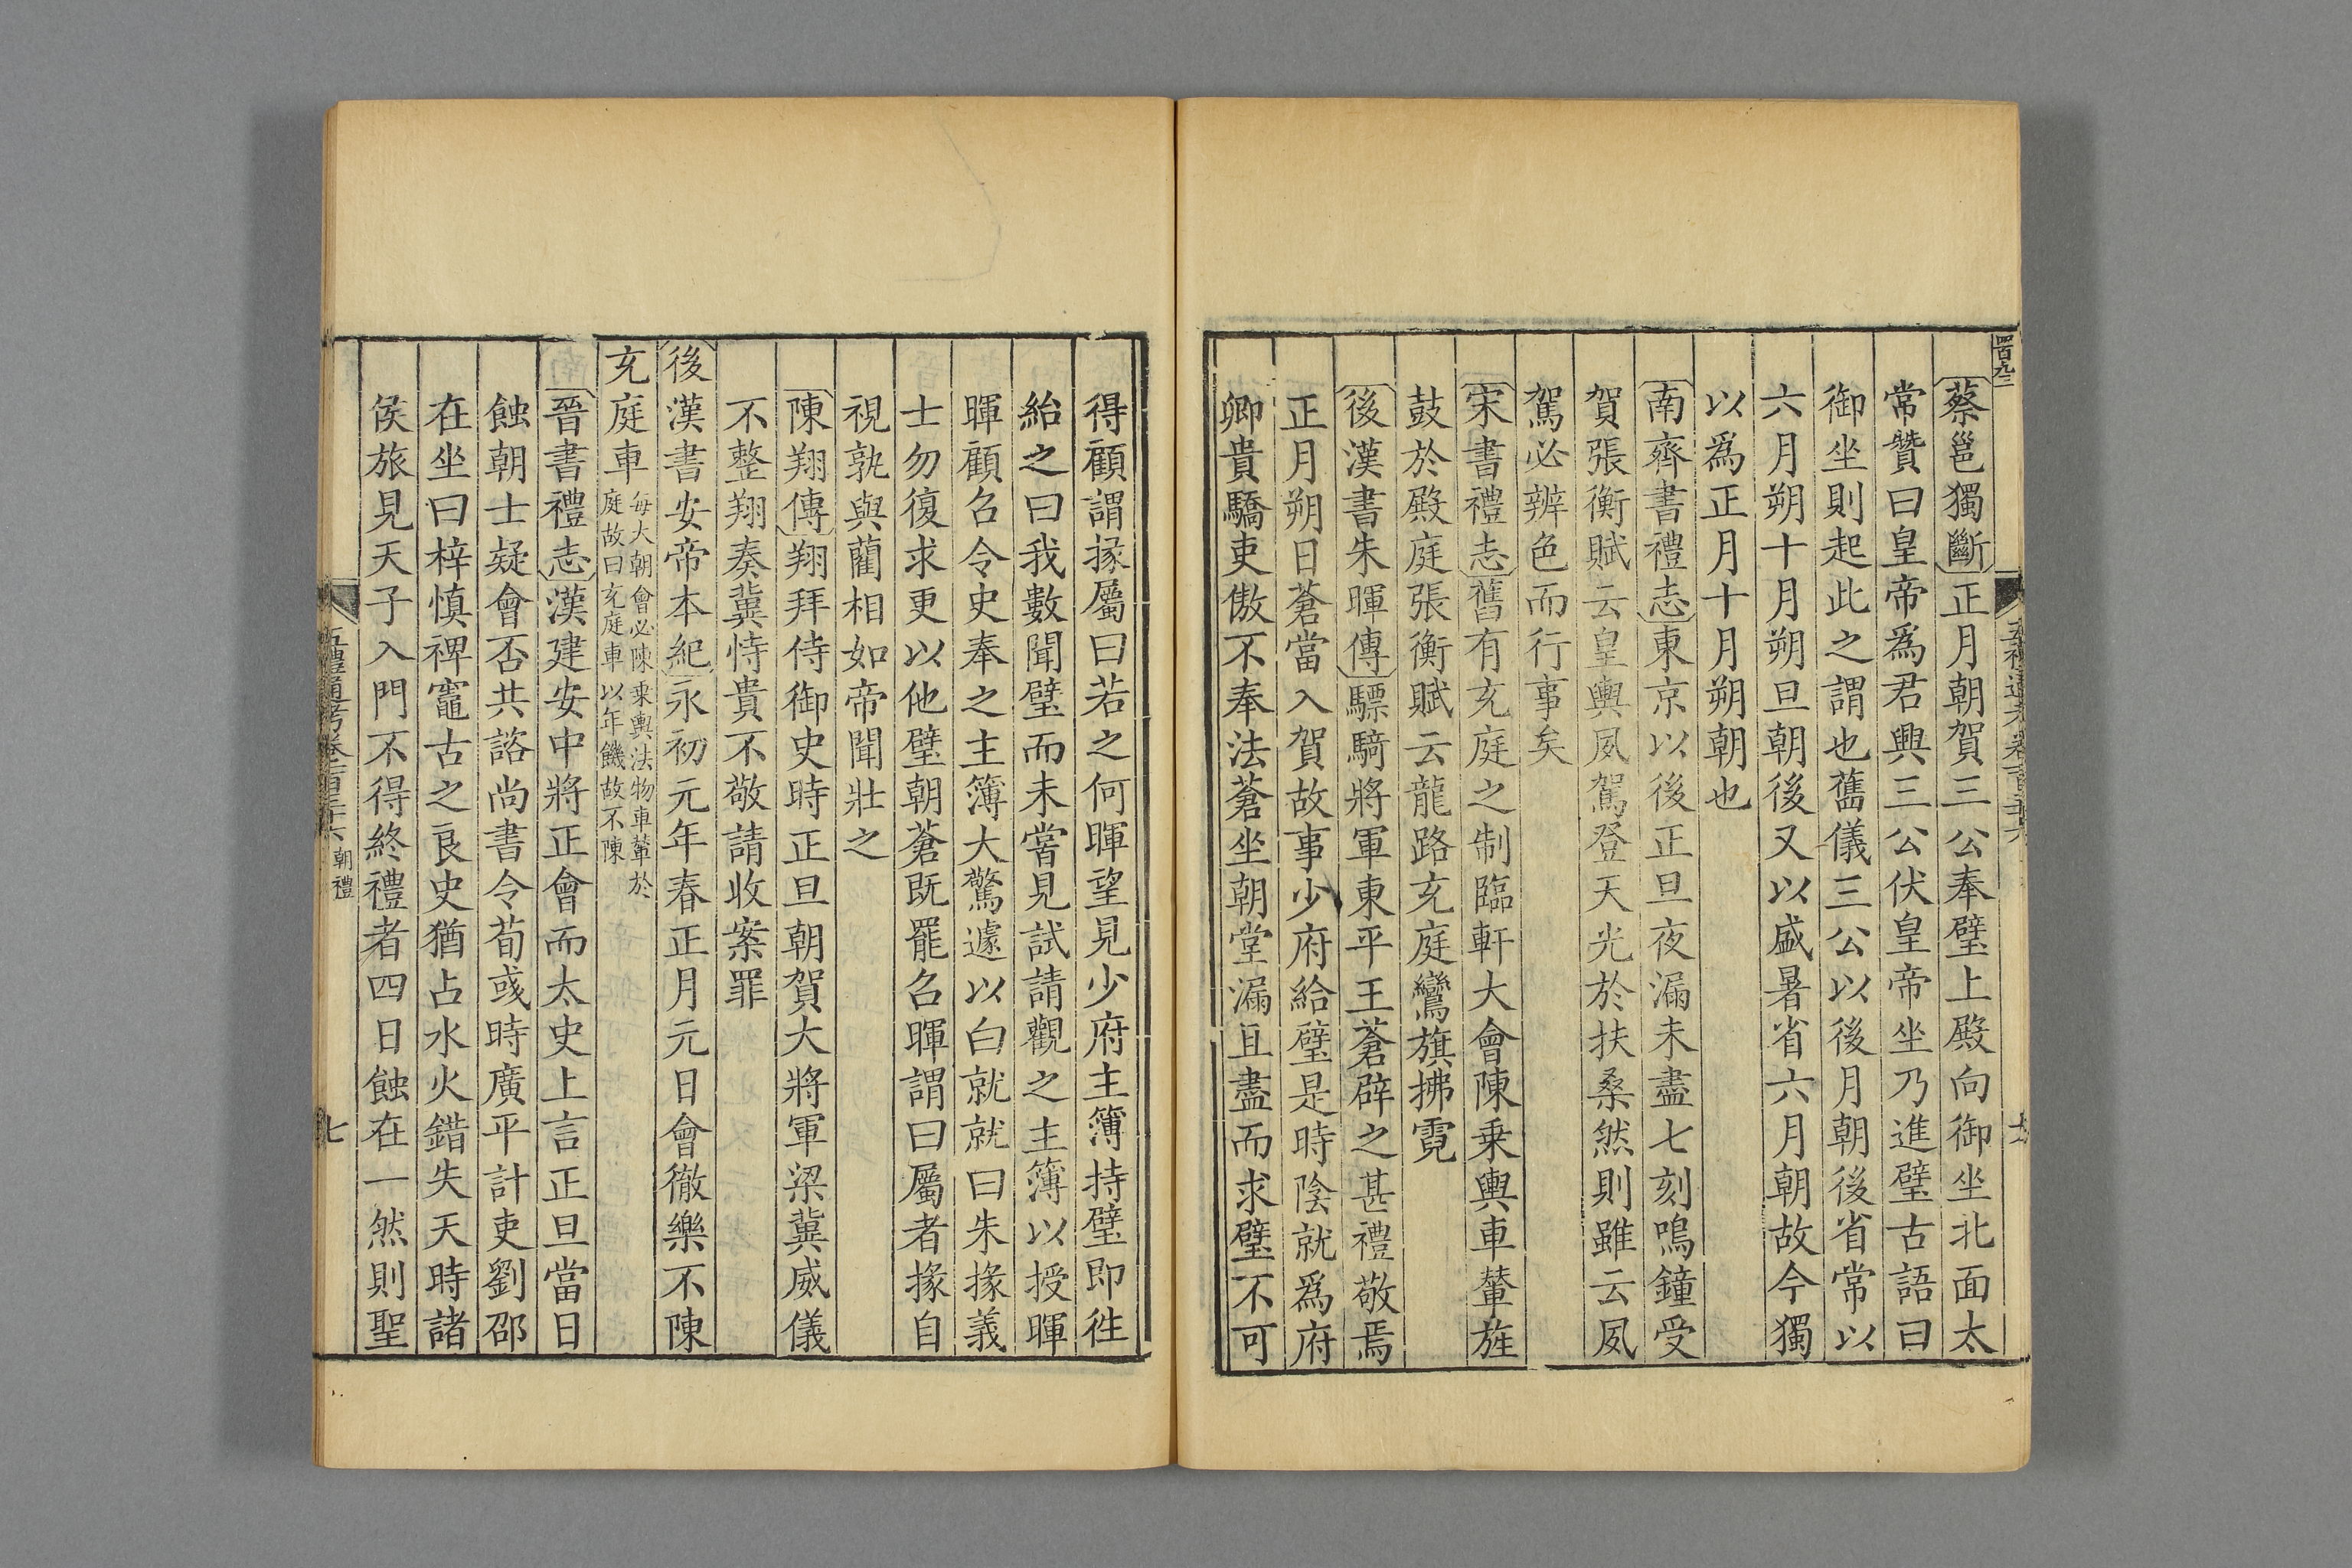 蔡邕獨斷正月朝賀三公奉璧上殿向御坐北面太
常贊曰皇帝爲君興三公伏皇帝坐乃進璧古語曰
御坐則起此之謂也舊儀三公以後月朝後省常以
六月朔十月朔旦朝後又以盛暑省六月朝故今獨
以爲正月十月朔朝也
南齊書禮志東京以後正旦夜漏未盡七刻鳴鐘受
賀張衡賦云皇輿夙駕登天光於扶桑然則雖云夙
駕必辨色而行事矣
宋書禮志舊有充庭之制臨軒大會陳乗輿車輦旌
鼓於殿庭張衡賦云龍路充庭鸞旗拂霓
後漢書朱暉傳驃騎將軍東平王蒼辟之甚禮敬焉
正月朔日蒼當入賀故事少府給璧是時陰就爲府
卿貴驕吏傲不奉法蒼坐朝堂漏且盡而求璧不可
得顧謂掾屬曰若之何暉望見少府主簿持璧即徃
紿之曰我數聞璧而未嘗見試請觀之主簿以授暉
暉顧召令史奉之主簿大驚遽以白就就曰朱掾義
士勿復求更以他璧朝蒼既罷召暉謂曰屬者掾自
視孰與藺相如帝聞壯之
陳翔傳翔拜侍御史時正旦朝賀大將軍梁冀威儀
不整翔奏冀恃貴不敬請收案罪
後漢書安帝本紀永初元年春正月元日會徹樂不陳
充庭車每大朝會必陳乗輿法物車輦於
庭故曰充庭車以年饑故不陳
晉書禮志漢建安中將正會而太史上言正旦當日
蝕朝士疑會否共諮尚書令荀彧時廣平計吏劉邵
在坐曰梓慎裨竈古之良史猶占水火錯失天時諸
侯旅見天子入門不得終禮者四日蝕在一然則聖
五禮通考卷一百三十六 朝禮
七